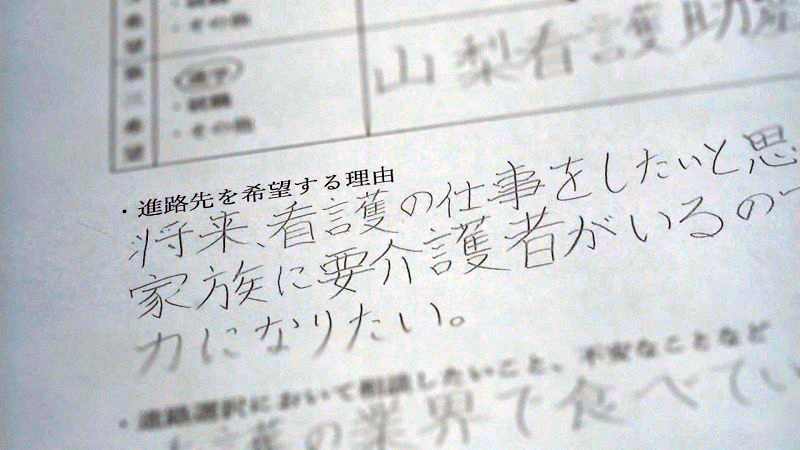 希望
・その他
第三希望
進学
・就職
・その他
山梨看護助産
・進路先を希望する理由
将来、看護の仕事をしたいと思
家族に要介護者がいるので
力になりたい。
・進路選択において相談したいこと、不安なことなど
の業界で食べてい